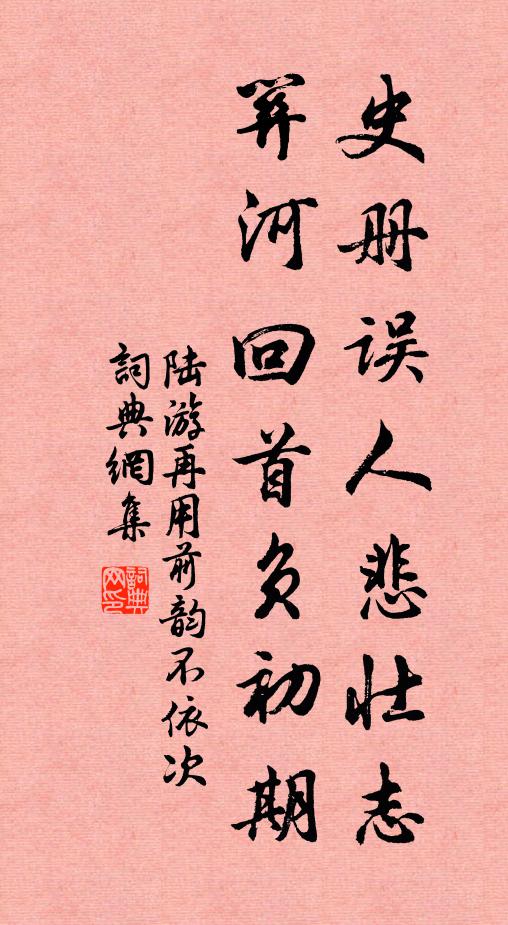 史册误人悲壮志
关河回首负初期
陆游再用前韵不依次
詞典網集
詞典网印